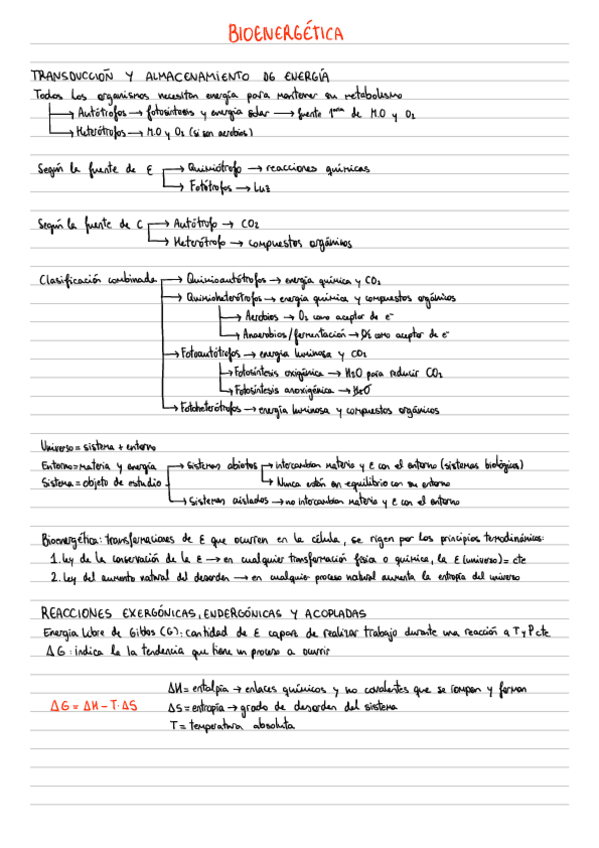 BIOENERGÉTICA
TRANSDUCCIÓN Y ALMACENAMIENTO DE ENERGÍA
Todos los organismos necesitan energía para mantener su metabolismo
→ Autótrofos → fotosíntesis y energía solar → fuente 1aria de M.O y O2
→ Heterótrofos → M.O y O2 (si son aerobios)
Según la fuente de E → Quimiótrofo → reacciones químicas
→ Fotótrofos → Luz
Según la fuente de C → Autótrofo → CO2
→ Heterótrofo → compuestos orgánicos
Clasificación combinada → Quimioautótrofos → energía química y CO2
→ Quimioheterótrofos → energía química y compuestos orgánicos
→ Aerobios → O2 como aceptor de e-
→ Anaerobios/fermentación → como aceptor de e-
→ Fotoautótrofos → energía luminosa y CO2
→ Fotosíntesis oxigénica → H2O para reducir CO2
→ Fotosíntesis anoxigénica → H2O
→ Fotoheterótrofos → energía luminosa y compuestos orgánicos
Universo = sistema + entorno
Entorno = materia y energía → sistemas abiertos → intercambian materia y E con el entorno (sistemas biológicos)
Sistema = objeto de estudio → Nunca están en equilibrio con su entorno
→ Sistemas aislados → no intercambian materia y E con el entorno
Bioenergética: transformaciones de E que ocurren en la célula, se rigen por los principios termodinámicos:
1. Ley de la conservación de la E → en cualquier transformación física o química, la E(universo) = cte
2. Ley del aumento natural del desorden → en cualquier proceso natural aumenta la entropía del universo
REACCIONES EXERGÓNICAS, ENDERGÓNICAS Y ACOPLADAS
Energía libre de Gibbs (G): cantidad de E capaz de realizar trabajo durante una reacción a T y P cte
ΔG: indica la la tendencia que tiene un proceso a ocurrir
ΔH = entalpía → enlaces químicos y no covalentes que se rompen y forman
ΔG = ΔH - T·ΔS ΔS = entropía → grado de desorden del sistema
T = temperatura absoluta